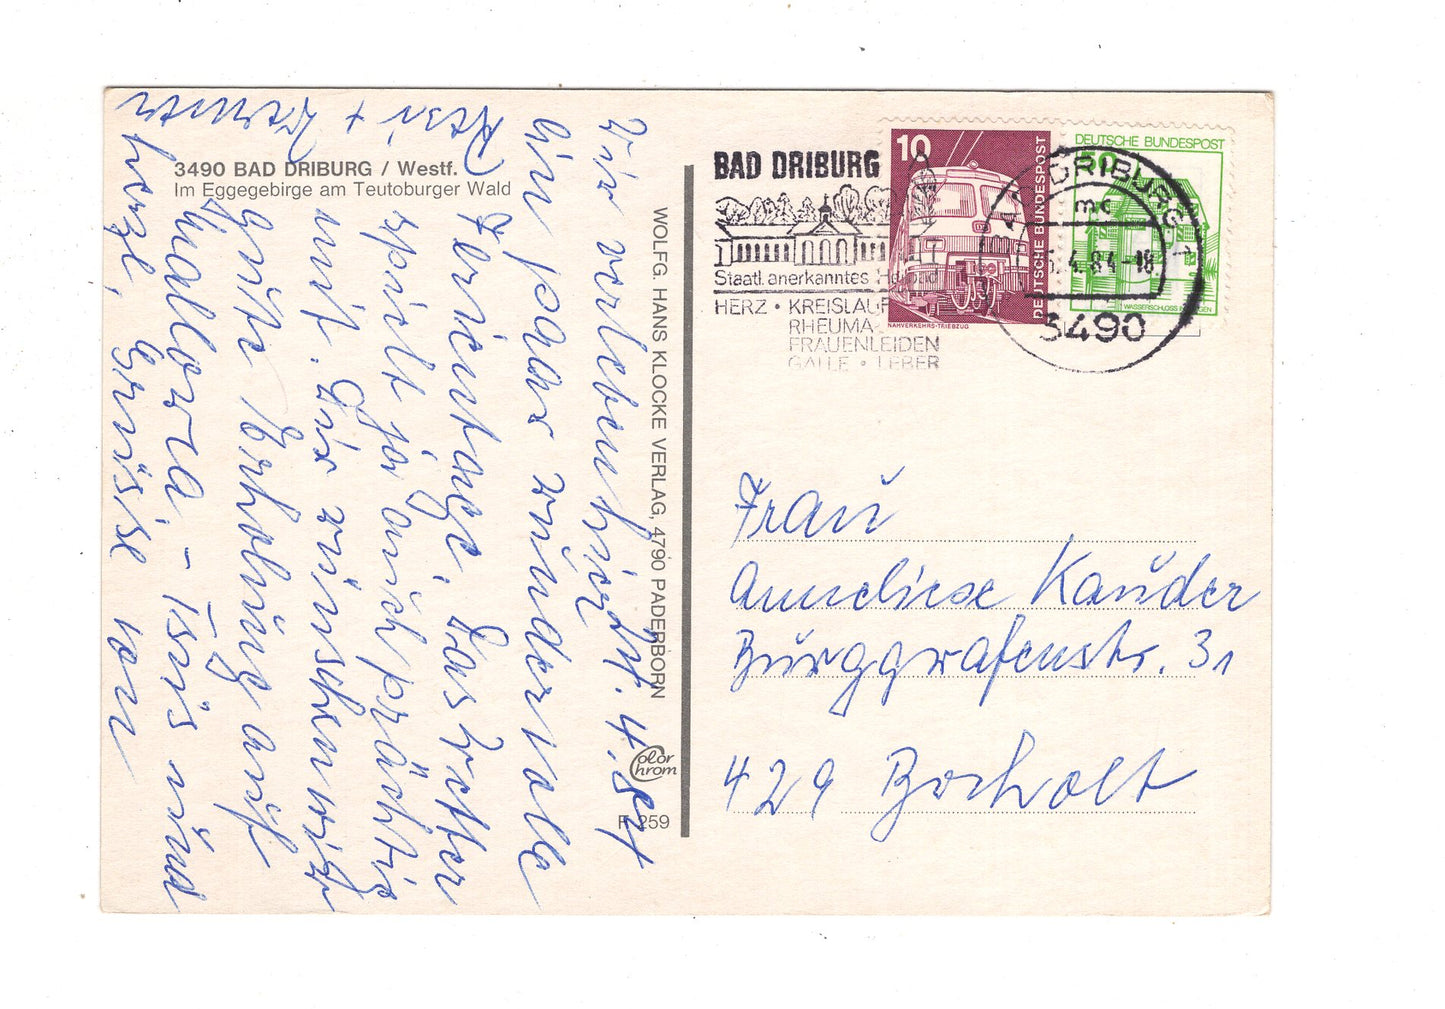 3490 BAD DRIBURG / Westf.
Im Eggegebirge am Teutoburger Wald
24. 4. 84
Wir verleben hier
ein paar wundervolle
Ferientage. Das Wetter
spielt ja auch prächtig
mit. Dir wünschen wir
gute Erholung auf
Mallorca. – Tschüs und
herzl. Grüsse von
Resi + Werner
WOLFG. HANS KLOCKE VERLAG, 4790 PADERBORN
Color
Chrom
F 259
BAD DRIBURG
Staatl. anerkanntes Heilbad
HERZ · KREISLAUF
RHEUMA
FRAUENLEIDEN
GALLE · LEBER
10
DEUTSCHE BUNDESPOST
NAHVERKEHRS-TRIEBZUG
DEUTSCHE BUNDESPOST
50
WASSERSCHLOSS
BAD DRIBURG 1
mc
5.4.84-18
3490
Frau
Anneliese Kauder
Burggrafenstr. 31
429 Bocholt